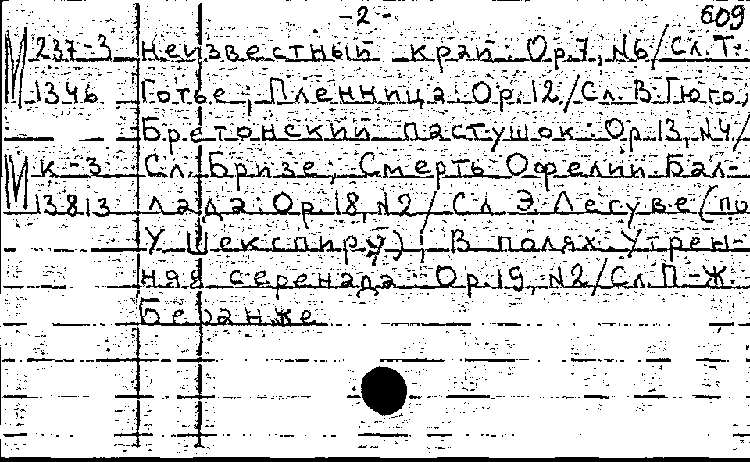 -2-
609
М 237-3 Неизвестный край: Ор.7, №6/Сл.Т.
1346 Готье; Пленница: Ор.12/Сл.В.Гюго;
Бретонский пастушок: Ор.13, №4/
М К-3 Сл. Бризе; Смерть Офелии: Бал-
13813 лада: Ор.18, №2/Сл. Э. Легуве (по
У. Шекспиру); В полях: Утрен-
няя серенада: Ор.19, №2/Сл.П.-Ж.
Беранже